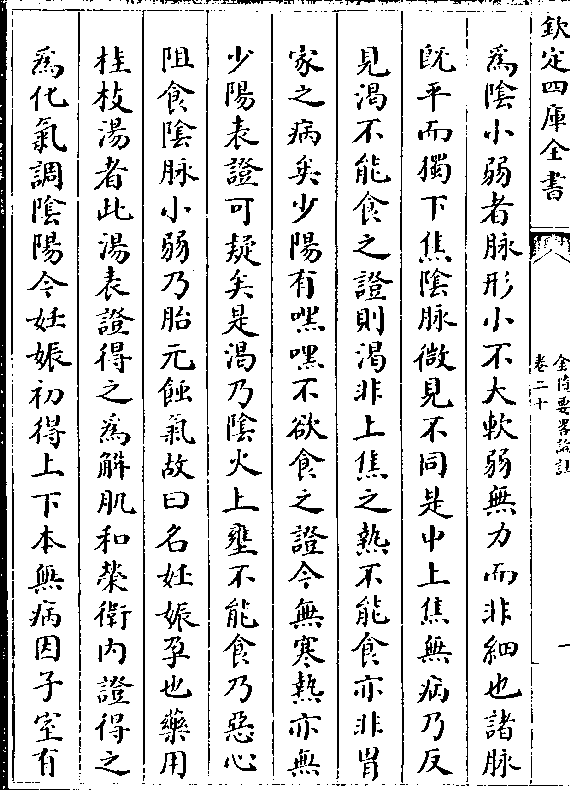 欽定四庫全書
金匱要畧論註
卷二十
一
為陰小弱者脉形小不大軟弱無力而非細也諸脉
既平而獨下焦陰脉微見不同是中上焦無病乃反
見渴不能食之證則渴非上焦之熱不能食亦非胃
家之病矣少陽有嘿嘿不欲食之證今無寒熱亦無
少陽表證可疑矣是渴乃陰火上壅不能食乃惡心
阻食陰脉小弱乃胎元蝕氣故曰名妊娠孕也藥用
桂枝湯者此湯表證得之為解肌和榮衛内證得之
為化氣調陰陽今妊娠初得上下本無病因子室有